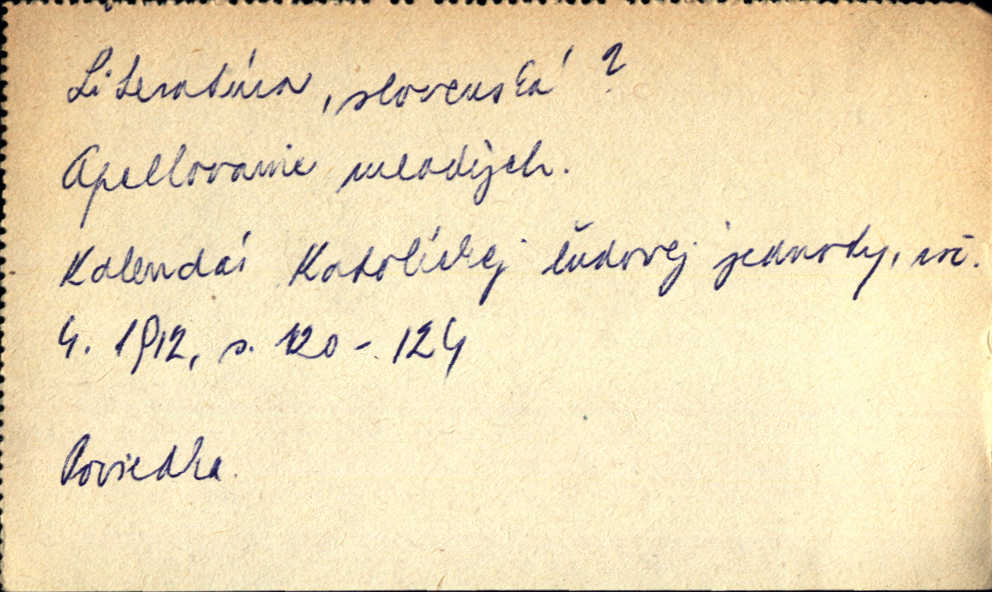 Literatúra, slovenská ?
Apellovanie mladých.
Kalendár Katolíckej ľudovej jednoty, roč.
4. 1912, s. 120 - 124
Poviedka.